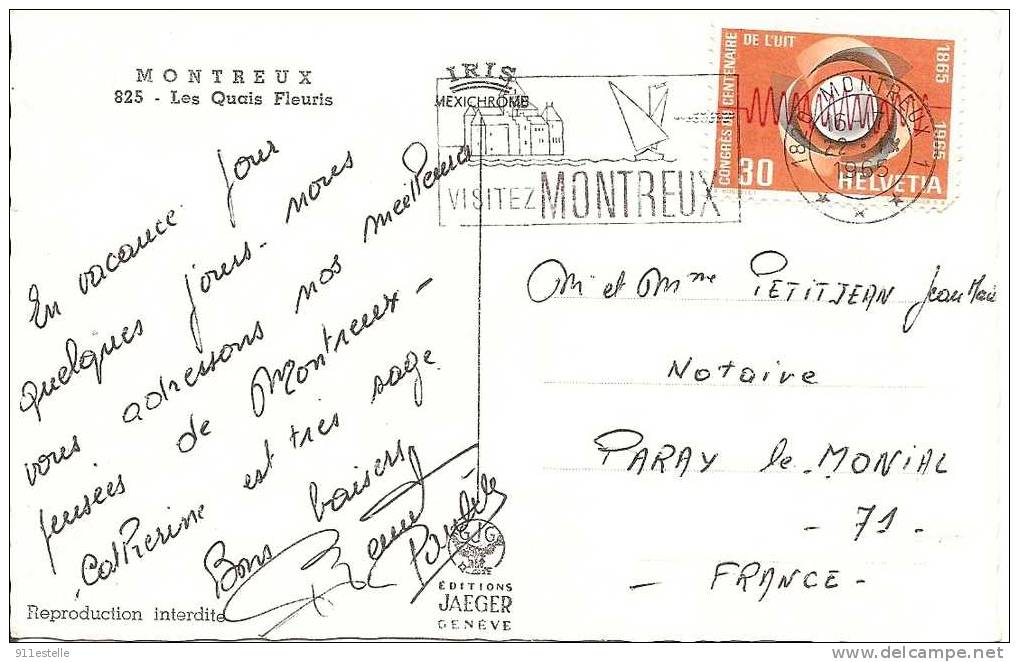 MONTREUX
825 - Les Quais Fleuris
IRIS
MEXICHROME
VISITEZ MONTREUX
CONGRÈS DU CENTENAIRE DE L'UIT
1865 1965
30 HELVETIA
1820 MONTREUX 1
1965
En vacance pour
quelques jours. nous
vous adressons nos meilleures
pensées de Montreux -
Catherine est très sage
Bons baisers
Mr et Mme PETITJEAN Jean Marie
Notaire
PARAY le MONIAL
- 71 -
- FRANCE -
GJG
EDITIONS
JAEGER
GENÈVE
Reproduction interdite
911estelle
delcampe.net